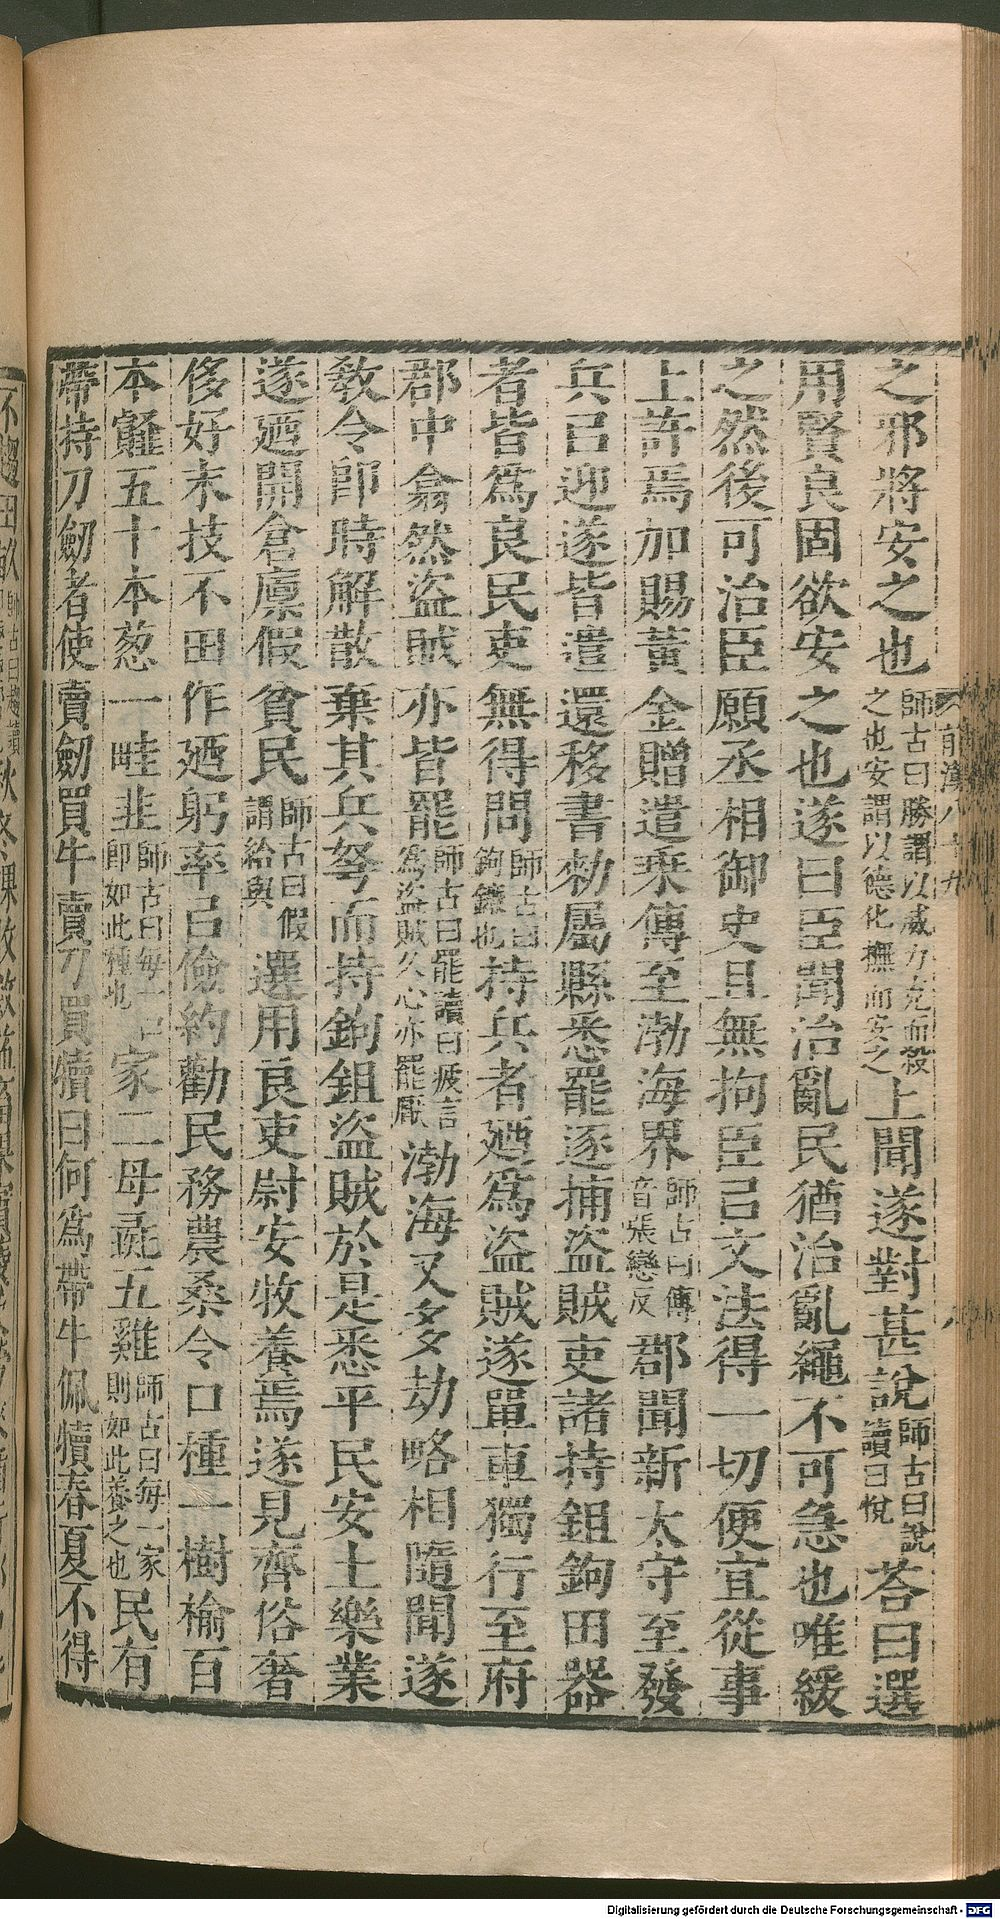 之邪將安之也師古曰勝謂以威力克而殺之也安謂以德化撫而安之上聞遂對甚說師古曰說讀曰悅荅曰選
用賢良固欲安之也遂曰臣聞治亂民猶治亂繩不可急也唯緩
之然後可治臣願丞相御史且無拘臣㠯文法得一切便宜從事
上許焉加賜黃金贈遣乘傳至渤海界師古曰傳音張戀反郡聞新太守至發
兵㠯迎遂皆遣還移書勑屬縣悉罷逐捕盜賊吏諸持鉏鉤田器
者皆爲良民吏無得問師古曰鉤鎌也持兵者廼爲盜賊遂單車獨行至府
郡中翕然盜賊亦皆罷師古曰罷讀曰疲言爲盜賊久心亦罷厭渤海又多劫略相隨聞遂
敎令卽時解散棄其兵弩而持鉤鉏盜賊於是悉平民安土樂業
遂廼開倉廩假貧民師古曰假謂給與選用良吏尉安牧養焉遂見齊俗奢
侈好末技不田作廼躬率㠯儉約勸民務農桑令口種一樹榆百
本䪥五十本葱一畦韭師古曰每一口卽如此種也家二母彘五雞師古曰每一家則如此養之也民有
帶持刀劒者使賣劒買牛賣刀買犢曰何爲帶牛佩犢春夏不得
前漢八十九
八
Digitalisierung gefördert durch die Deutsche Forschungsgemeinschaft - DFG